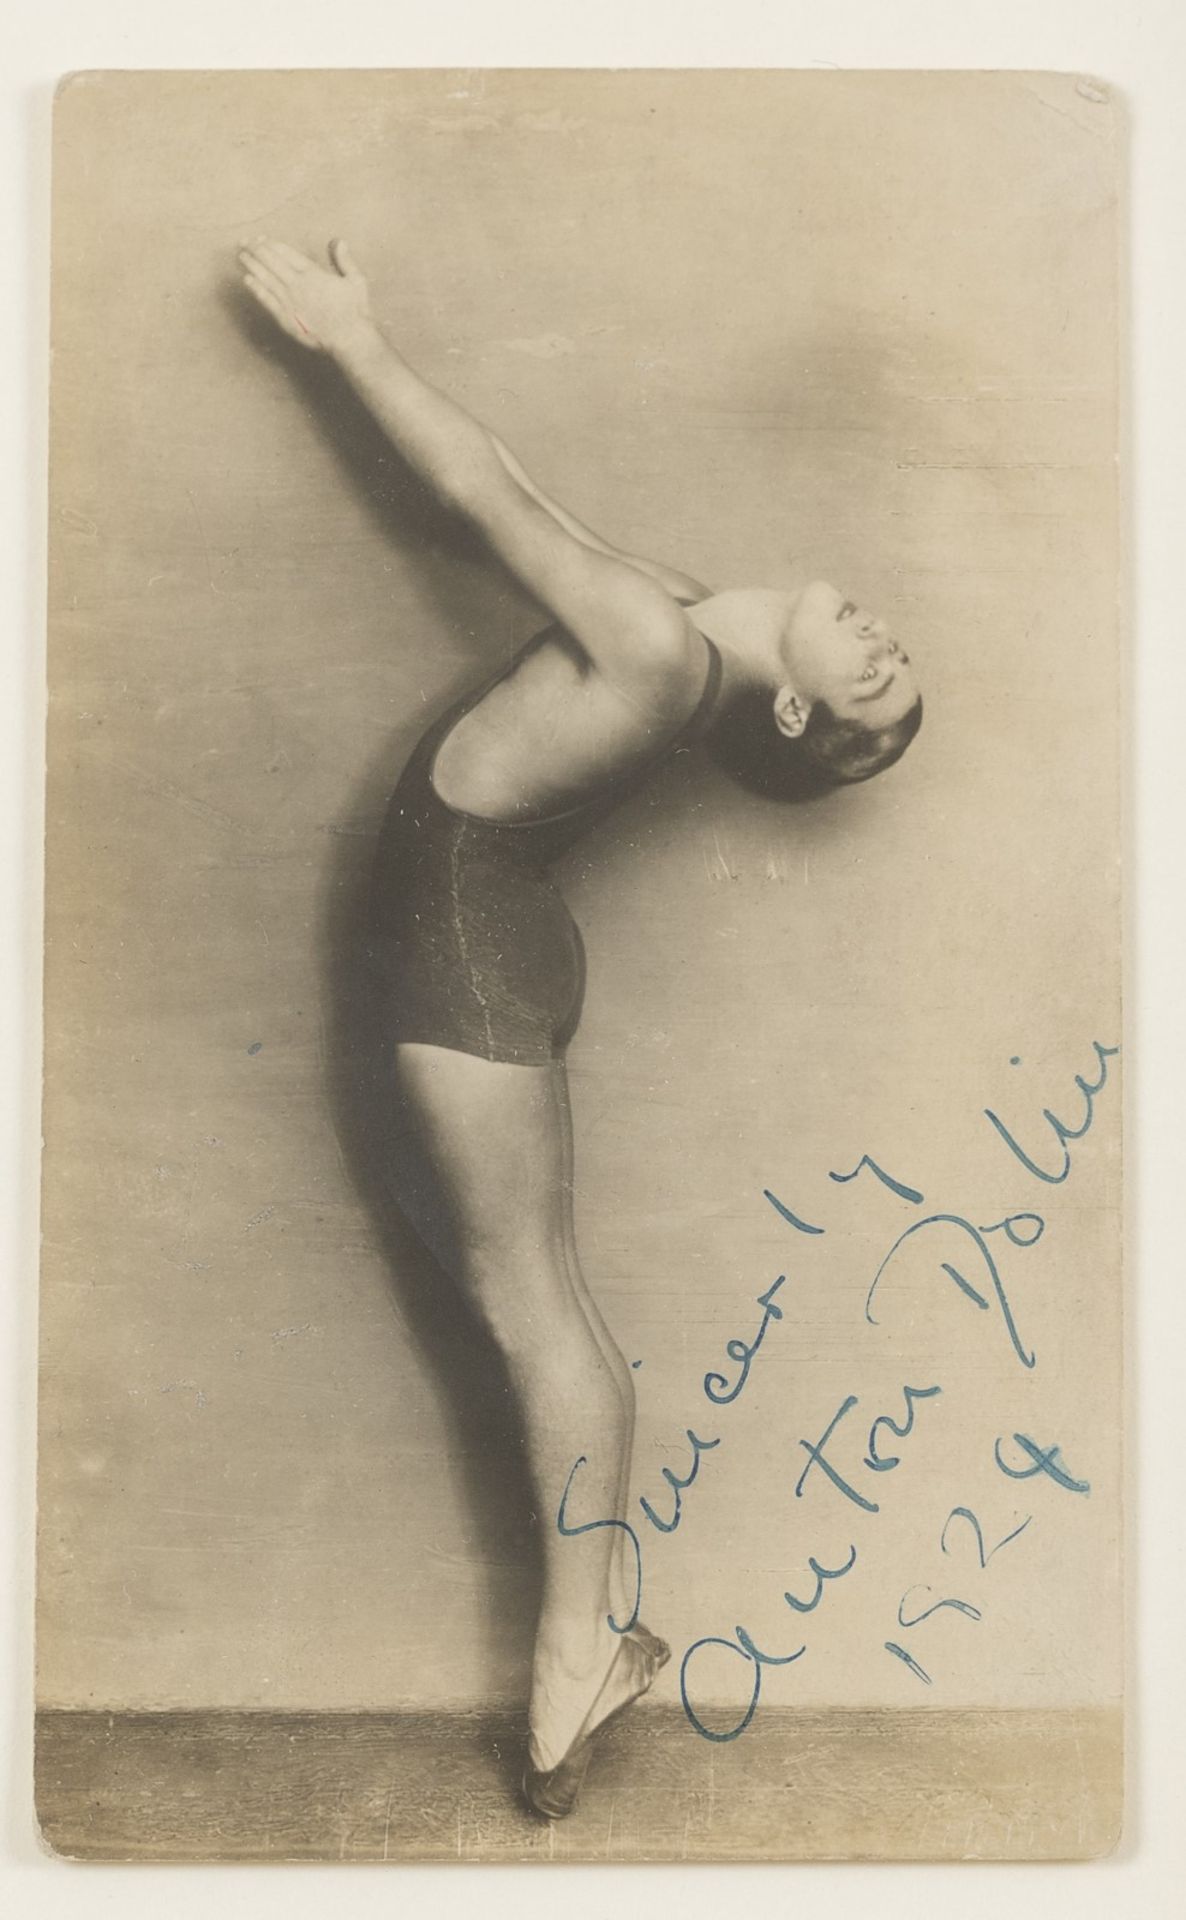 Sincerly
Anton Dolin
1924